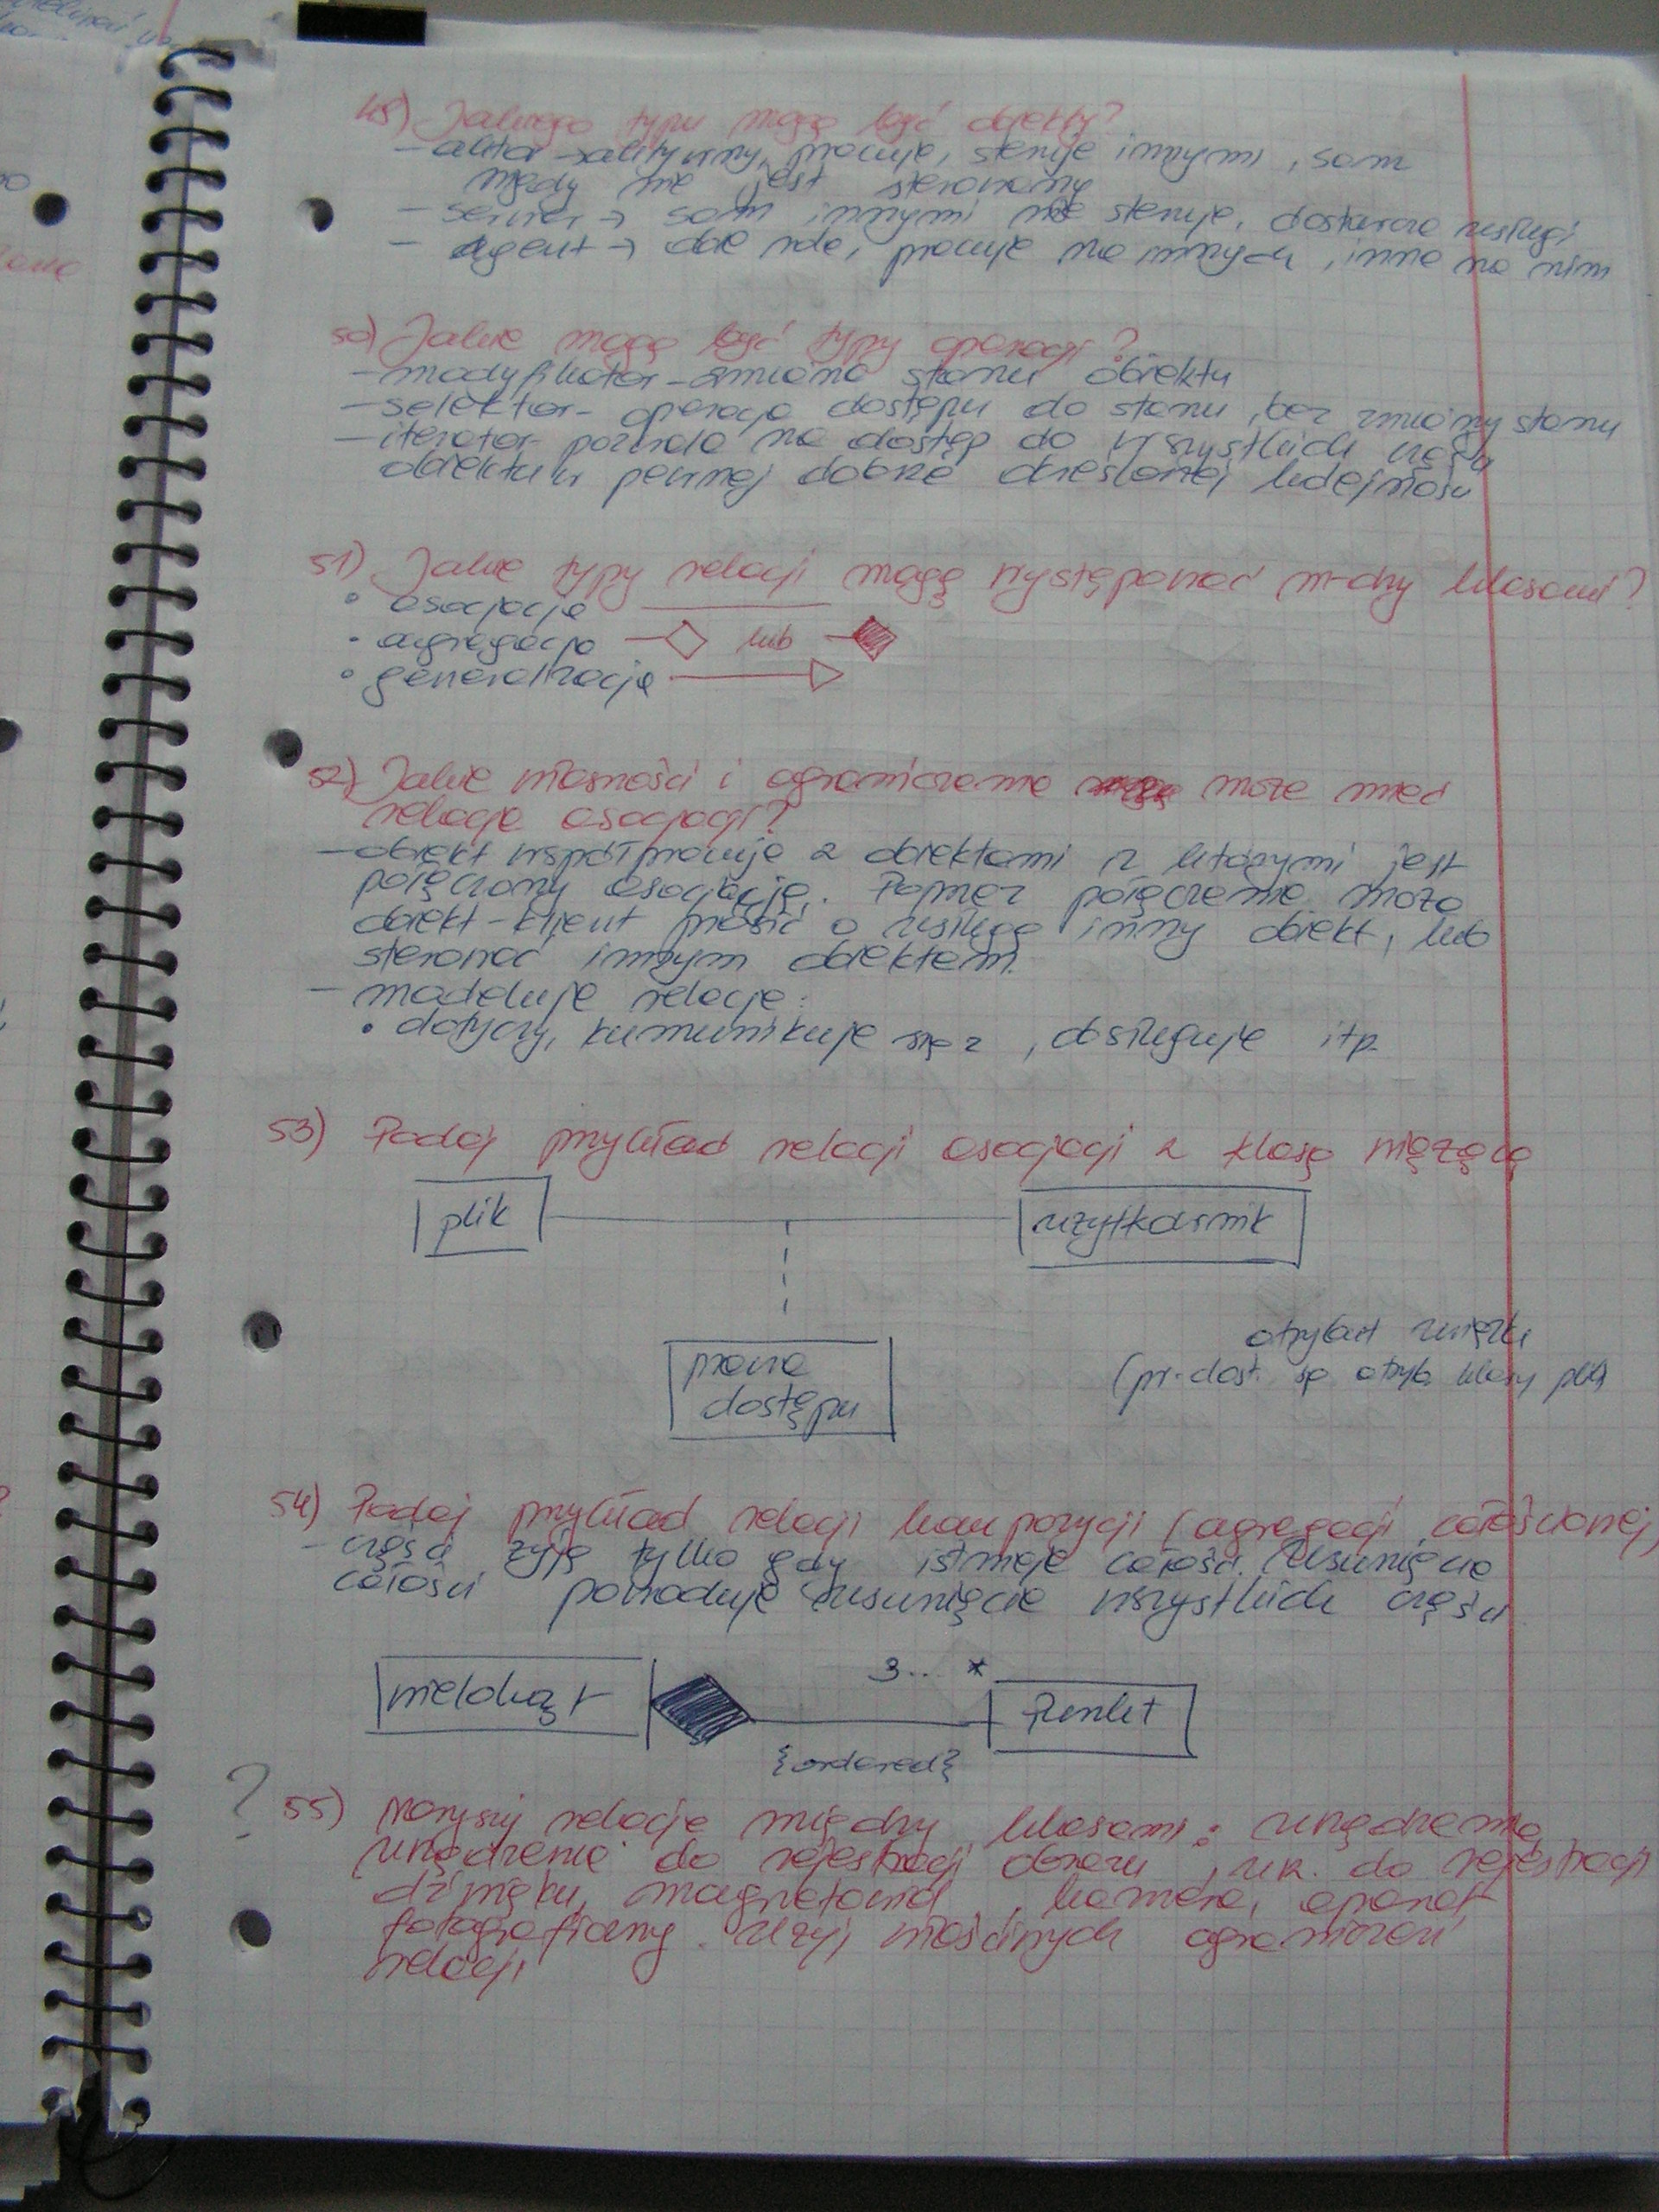 49) Jakiego typu mogą być obiekty?
- aktor → aktywny, pracuje, steruje innymi, sam
nigdy nie jest sterowany
- serwer → sam innymi nie steruje, dostarcza usługi
- agent → obie role, pracuje na innych, inne na nim
50) Jakie mogą być typy operacji?
- modyfikator - zmiana stanu obiektu
- selektor - operacja dostępu do stanu, bez zmiany stanu
- iterator - pozwala na dostęp do wszystkich części
obiektu w pewnej dobrze określonej kolejności
51) Jakie typy relacji mogą występować m-dzy klasami?
• asocjacja
• agregacja lub
• generalizacja
52) Jakie własności i ograniczenia może mieć
relacja asocjacji?
- obiekt współpracuje z obiektami z którymi jest
połączony asocjacją. Poprzez połączenie może
obiekt-klient prosić o usługę inny obiekt, lub
sterować innym obiektem.
- modeluje relacje:
• dotyczy, kumunikuje się z, obsługuje itp.
53) Podaj przykład relacji asocjacji z klasą wiążącą
plik
użytkownik
prawa
dostępu
atrybut związku
(pr. dost. są atryb. klasy plik)
54) Podaj przykład relacji kompozycji (agregacji całościowej)
- część żyje tylko gdy istnieje całość. Usunięcie
całości powoduje usunięcie wszystkich części
wielokąt
3.. *
Punkt
{ordered}
?
55) Narysuj relacje między klasami: urządzenie,
urządzenie do rejestracji obrazu, urz. do rejestracji
dźwięku, magnetowid, kamera, aparat
fotograficzny. Użyj właściwych ograniczeń
relacji